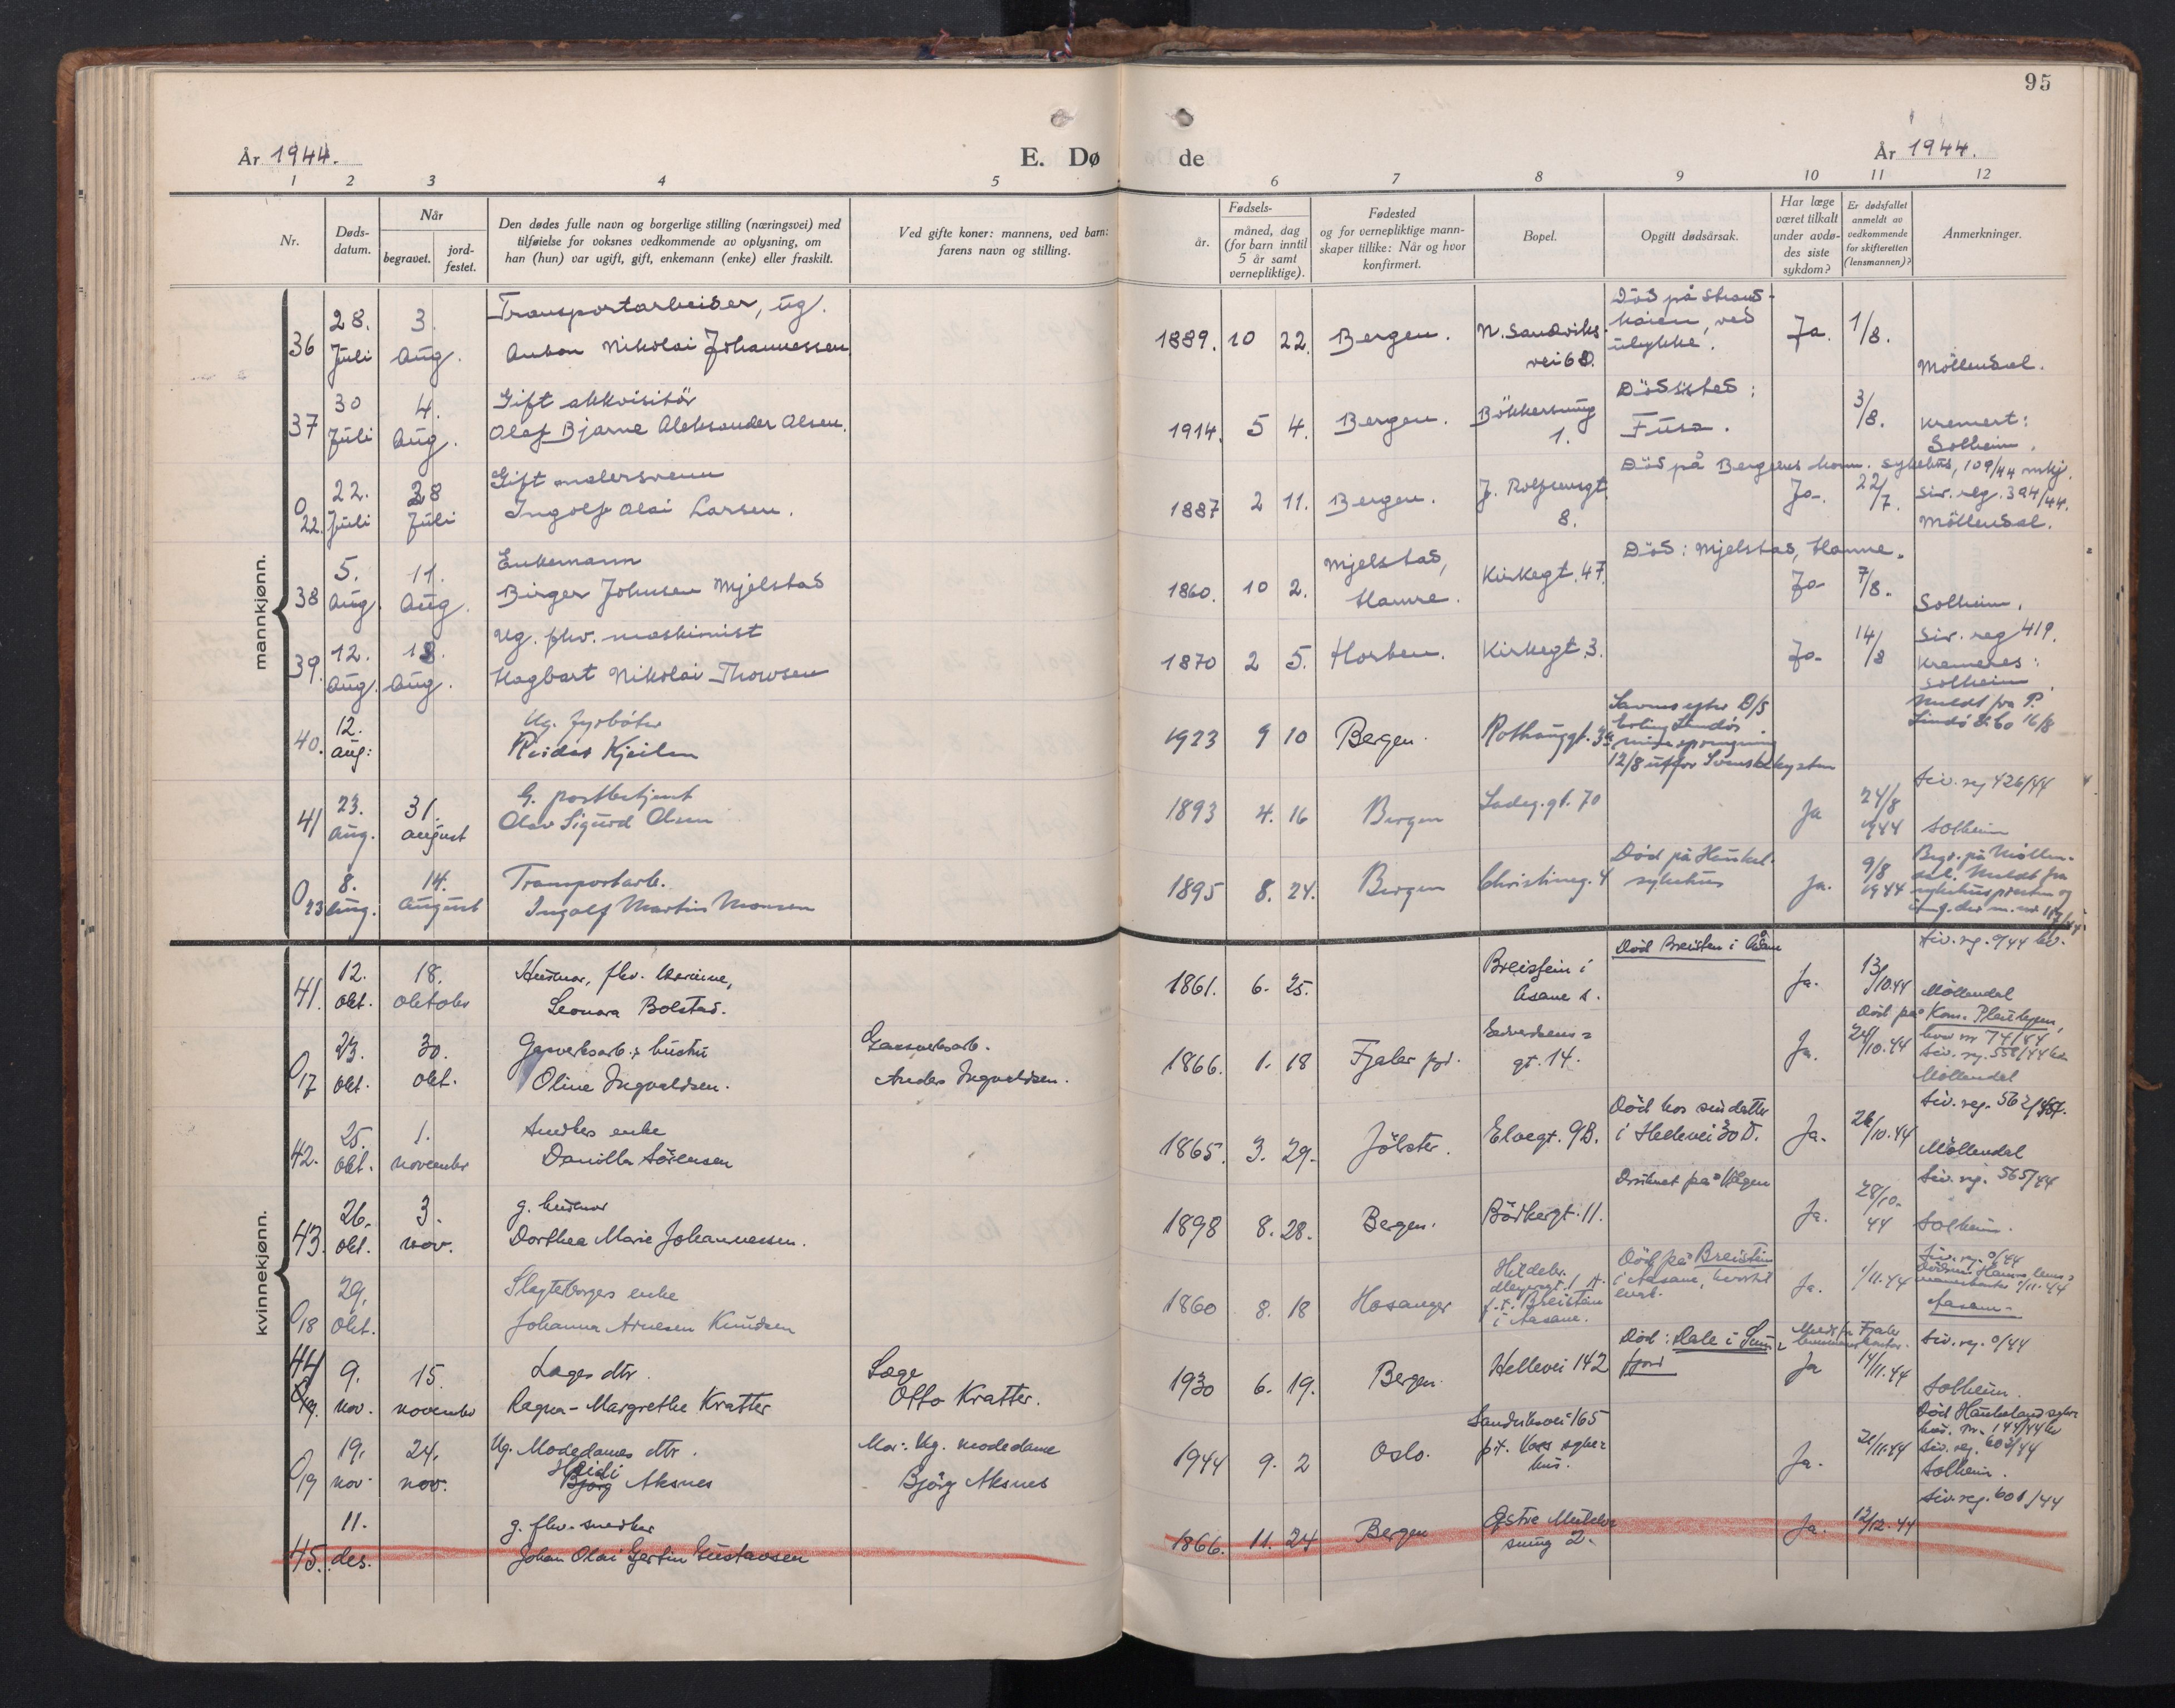 95
År 1944.
E. Dø
de
År 1944.
1 2 3 4 5 6 7 8 9 10 11 12
Nr.
Døds-
datum.
Når
begravet.
jord-
festet.
Den dødes fulle navn og borgerlige stilling (næringsvei) med
tilføielse for voksnes vedkommende av oplysning, om
han (hun) var ugift, gift, enkemann (enke) eller fraskilt.
Ved gifte koner: mannens, ved barn:
farens navn og stilling.
Fødsels-
år.
måned, dag
(for barn inntil
5 år samt
vernepliktige).
Fødested
og for vernepliktige mann-
skaper tillike: Når og hvor
konfirmert.
Bopel.
Opgitt dødsårsak.
Har læge
været tilkalt
under avdø-
des siste
sykdom?
Er dødsfallet
anmeldt av
vedkommende
for skifteretten
(lensmannen)?
Anmerkninger.
mannkjønn.
36
28.
Juli
3.
Aug.
Transportarbeider, ug.
Anton Nikolai Johannessen
1889. 10 22. Bergen.
N. Sandviks
vei 68.
Død på Strand-
kaien, ved
ulykke.
Ja. 1/8.
Möllendal.
37
30
Juli
4.
Aug.
Gift akkvisitör
Olaf Bjarne Aleksander Olsen.
1914. 5 4. Bergen.
Bökkersmug
1.
Dödssted:
Fusa.
3/8.
Kremert:
Solheim.
0
22.
22.
Juli
28
Juli
Gift malersvenn
Ingolf Olai Larsen.
1887 2 11. Bergen.
J. Rolfsensgt.
8.
Död på Bergens kom. sykehus, 109/44 mkj.
Ja. 22/7.
Siv. reg. 394/44.
Möllendal.
38
5.
Aug.
11.
Aug.
Enkemann
Birger Johnsen Mjelstad
1860. 10 2.
Mjelstad,
Hamre.
Kirkegt. 47.
Död: Mjelstad, Hamre.
Ja 7/8.
Solheim.
39.
12.
Aug.
18.
Aug.
Ug. fhv. maskinist
Hagbart Nikolai Thowsen
1870 2 5. Horten. Kirkegt. 3.
Ja 14/8
Siv. reg 419.
Kremeres:
Solheim.
40.
12.
Aug:
Ug. fyrböter
Reidar Kjeilen
1923 9 10 Bergen.
12/8 utfor Svenskekysten
Meldt fra P.
Lindö & Co 16/8
41
23.
Aug.
31.
August
G. postbetjent
Olav Sigurd Olsen
1893 4. 16 Bergen
Ladeg.gt. 70
Ja
24/8
1944
Siv. reg 426/44
Solheim
0
23
8.
Aug.
14.
August
Transportarb.
Ingolf Martin Monsen
1895 8. 24. Bergen
Christineg. 4
Død på Haukel.
sykehus
Ja.
9/8
1944
Begr. på Møllen-
dal. Meldt fra
sykehuspresten og
kvinnekjønn.
41.
12.
okt.
18.
oktober
Leonora Bolstad.
1861. 6. 25.
Breistein i
Åsane s.
Død Breistein i Åsane
Ja. 13/10.44
Siv. reg. 944 kv.
Möllendal
0
17
23.
okt.
30.
okt.
Gassverksarb.s hustru
Oline Ingvaldsen.
Gassverksarb.
Anders Ingvaldsen.
1866. 1. 18 Fjaler pgd.
gt. 14.
Ja. 24/10.44
Död på Kom. Pleiehjem,
kvv nr 74/44
Siv. reg. 558/44 kv
Möllendal
42.
25.
okt.
1.
november
Snedkers enke
Danilla Sörensen
1865. 3. 29. Jölster.
Elvegt. 9B.
Död hos sin datter
i Hellevei 30 D.
Ja. 26/10.44
Siv. reg. 562/44.
Möllendal
43.
26.
okt.
3.
nov.
g. husmor
Dorthea Marie Johannessen.
1898 8. 28. Bergen.
Bödkergt. 11.
Druknet på Vågen
Ja.
28/10-
44
Siv. reg. 565/44
Solheim.
0
18
29.
okt.
Johanna Arnesen Knudsen
1860 8. 18 Hosanger
f.t. Breistein
i Aasane.
Död på Breistein
i Aasane,
Ja. 1/11.44
Siv. reg. 0/44
Aasane
44
0
19.
9.
nov.
15.
november
Læges dtr.
Ragna-Margrethe Kratter
Læge
Otto Kratter.
1930 6. 19. Bergen.
Hellevei 142
Död: Dale i Sunn-
fjord
Ja 14/11.44
Siv. reg. 0/44
Solheim.
0
19
19.
nov.
24.
nov.
Ug. Modedames dtr.
Heidi
Björg Aksnes
Mor: Ug. modedame
Björg Aksnes
1944 9. 2 Oslo.
Sandviksvei 165
p.t. Voss syke-
hus.
Ja. 21/11.44
Död Haukeland syke-
hus. nr. 144/44 kv
Siv. reg. 602/44
Solheim.
45.
11.
des.
g. fhv. snedker
Johan Olai Gertin Gustavsen
1866. 11. 24 Bergen
Østre Murhder-
smug 2.
Ja. 12/12.44
Siv. reg. 601/44